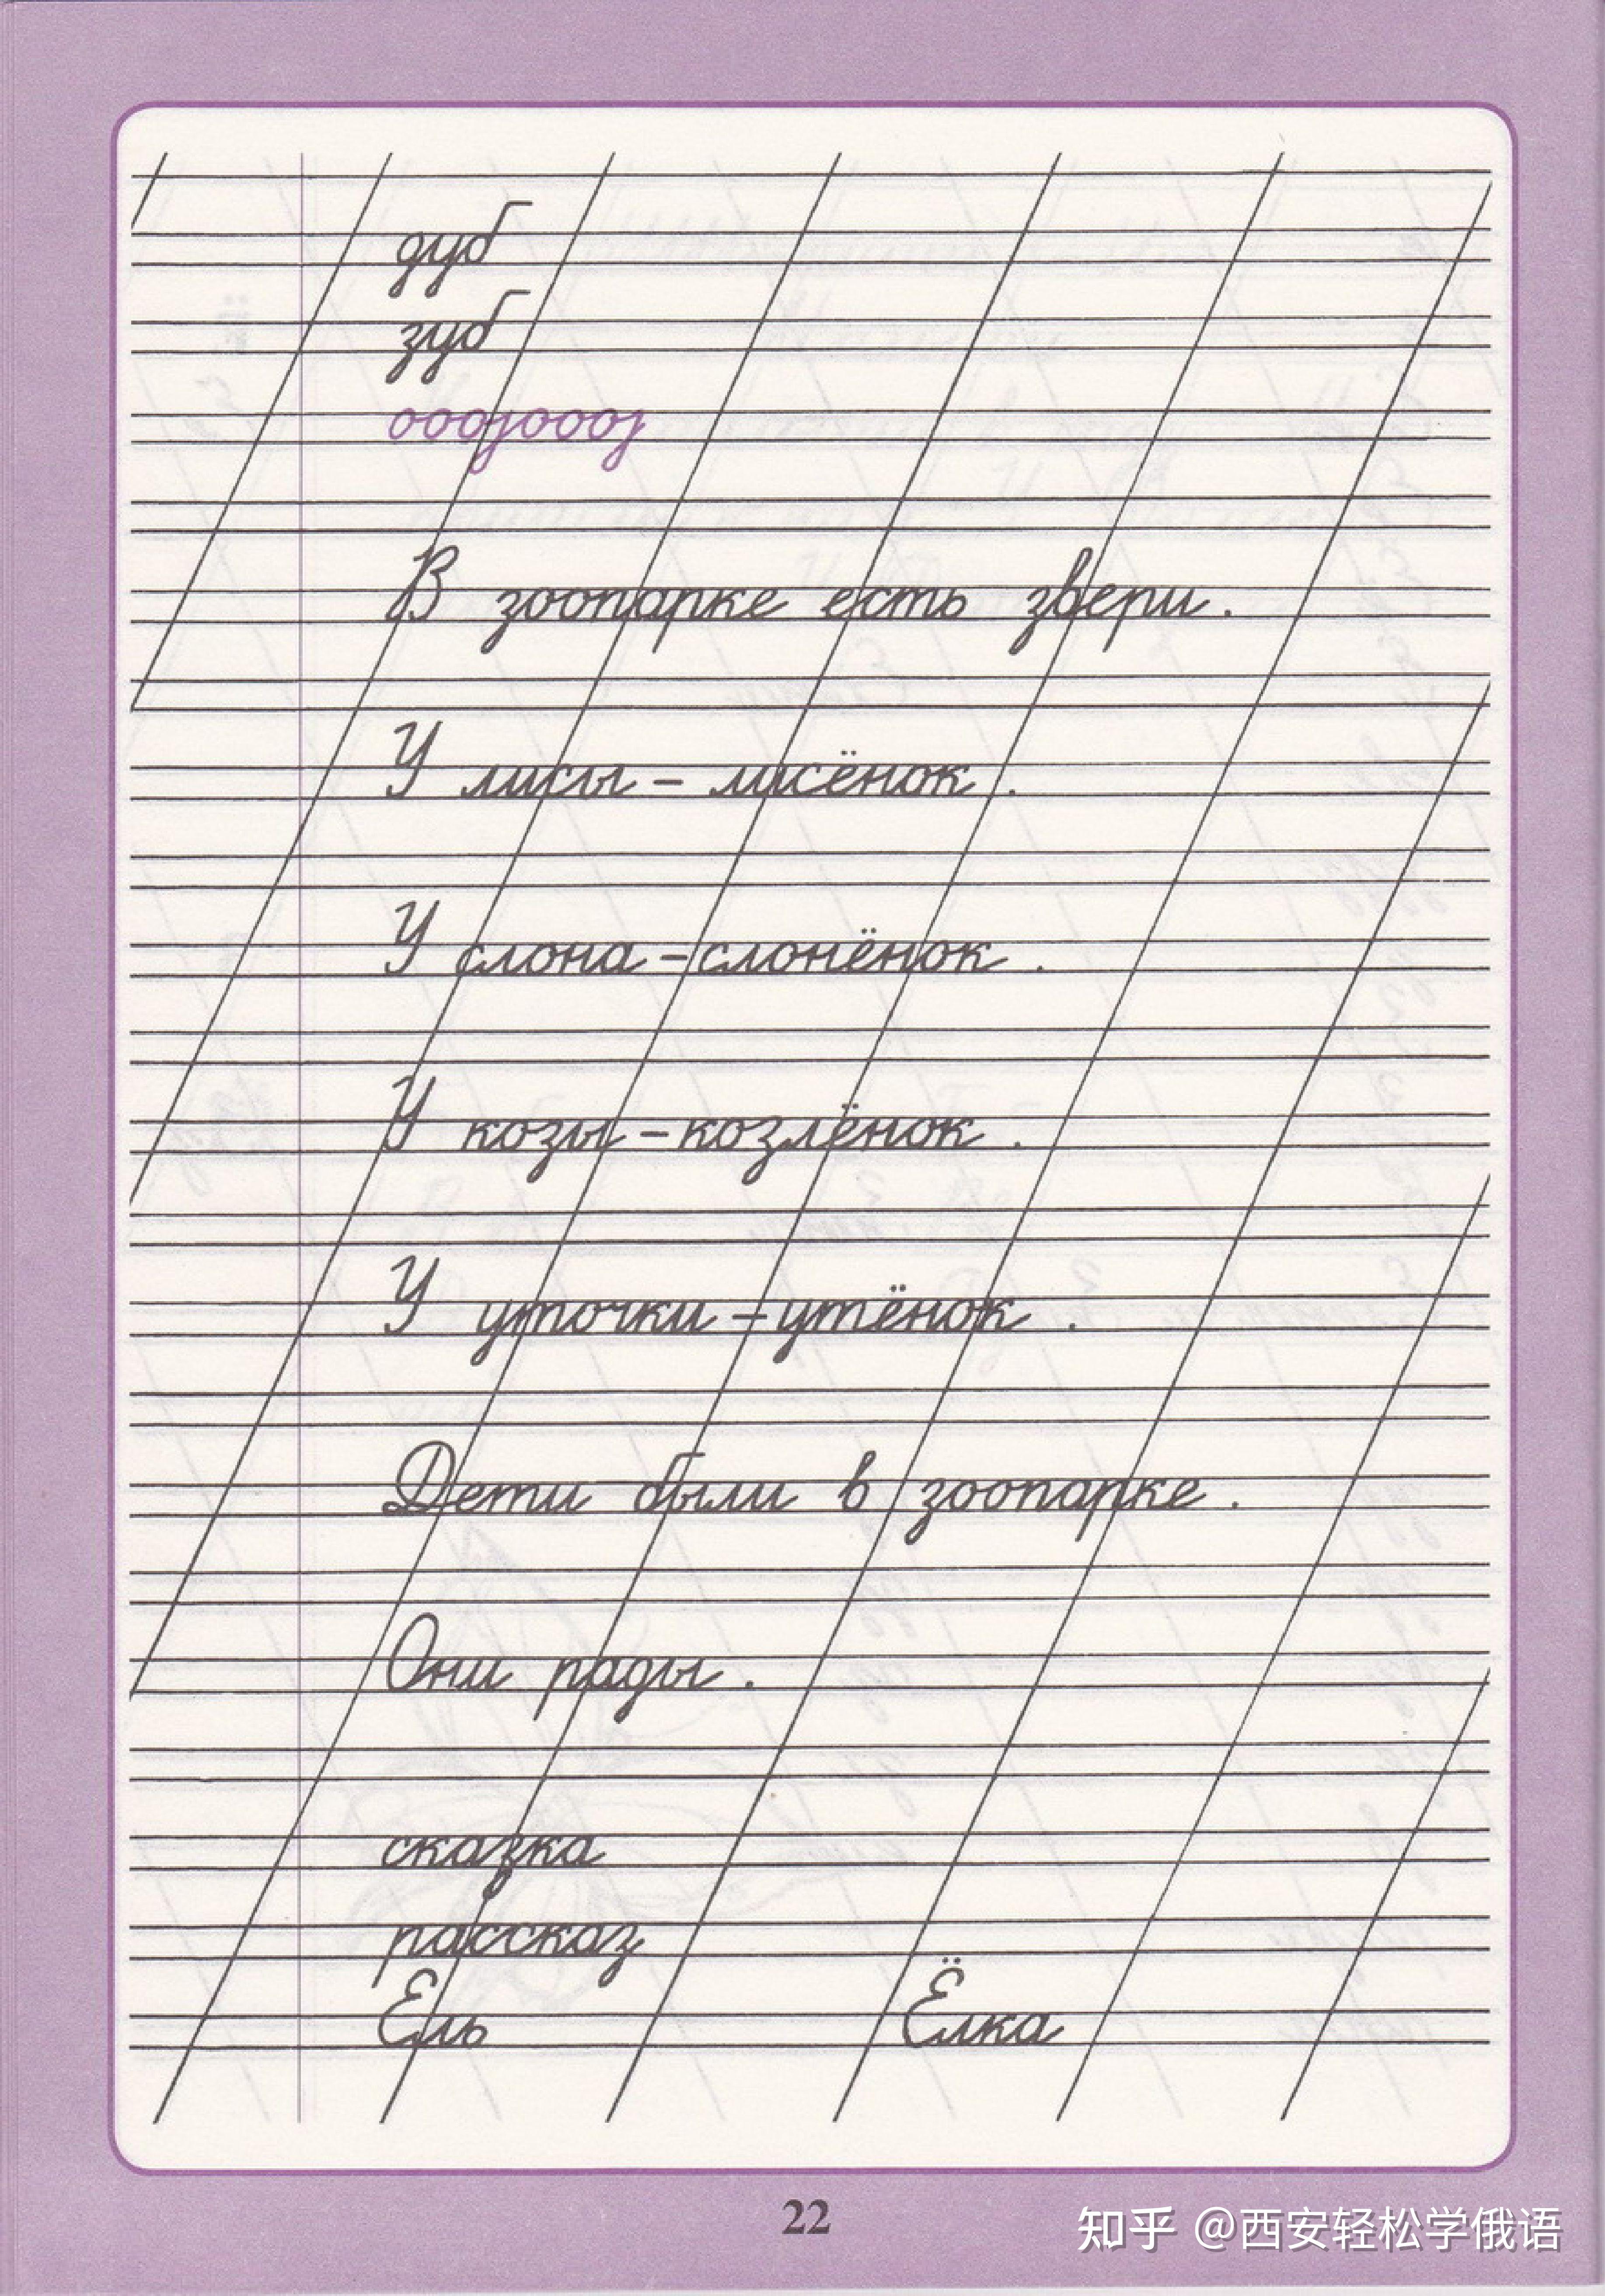 дуб
зуб
оооjоооj
В зоопарке есть звери.
У лисы – лисёнок.
У слона – слонёнок.
У козы – козлёнок.
У уточки – утёнок.
Дети были в зоопарке.
Они рады.
сказка
рассказ
Ель Ёлка
22
知乎 @西安轻松学俄语